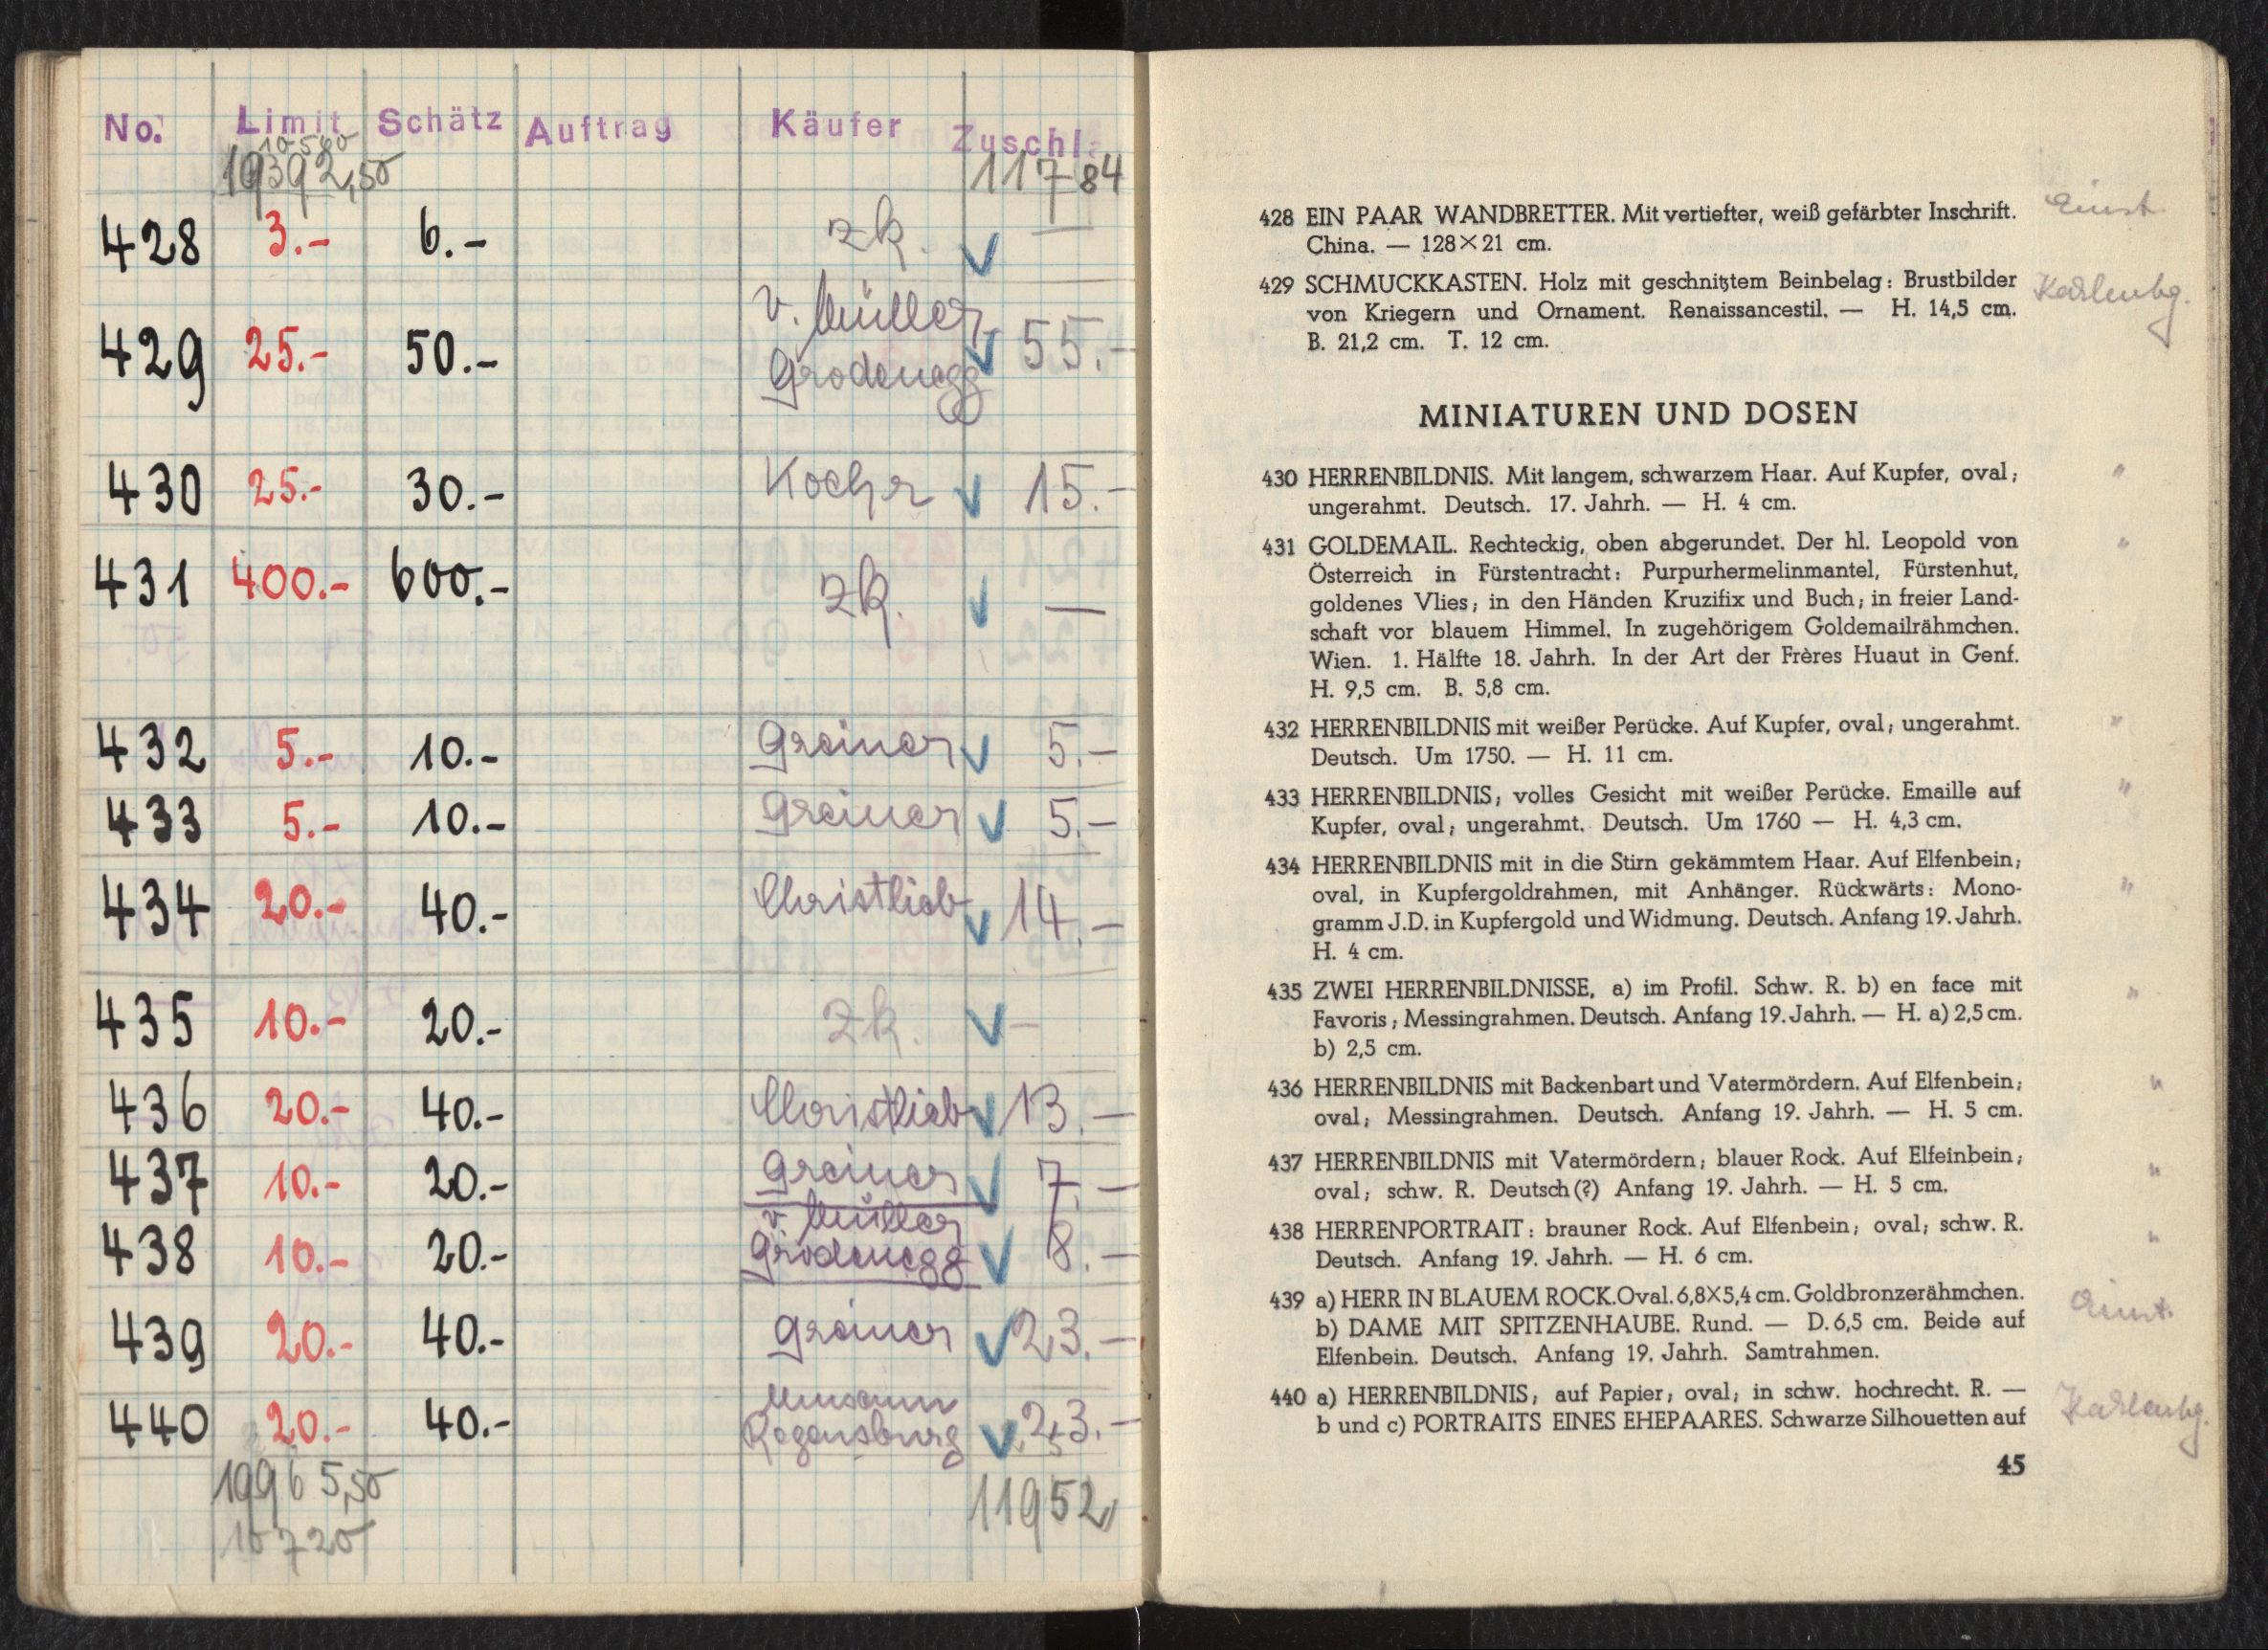 No. Limit Schätz Auftrag Käufer Zuschl.
10500
19392,50 11784
428 3.- 6.- zk. —
429 25.- 50.- v. Müller Grodenegg 55.-
430 25.- 30.- Kocher 15.-
431 400.- 600.- zk. —
432 5.- 10.- Greiner 5.-
433 5.- 10.- Greiner 5.-
434 20.- 40.- Christlieb 14.-
435 10.- 20.- zk. -
436 20.- 40.- Christlieb 13.-
437 10.- 20.- Greiner 7.-
438 10.- 20.- v. Müller Grodenegg 8.-
439 20.- 40.- Greiner 23.-
440 20.- 40.- Museum Regensburg 23.-
19965,50 11952
10720
428 EIN PAAR WANDBRETTER. Mit vertiefter, weiß gefärbter Inschrift.
China. — 128×21 cm.
429 SCHMUCKKASTEN. Holz mit geschnitztem Beinbelag: Brustbilder
von Kriegern und Ornament. Renaissancestil. — H. 14,5 cm.
B. 21,2 cm. T. 12 cm.
MINIATUREN UND DOSEN
430 HERRENBILDNIS. Mit langem, schwarzem Haar. Auf Kupfer, oval; "
ungerahmt. Deutsch. 17. Jahrh. — H. 4 cm.
431 GOLDEMAIL. Rechteckig, oben abgerundet. Der hl. Leopold von "
Österreich in Fürstentracht: Purpurhermelinmantel, Fürstenhut,
goldenes Vlies; in den Händen Kruzifix und Buch; in freier Land-
schaft vor blauem Himmel. In zugehörigem Goldemailrähmchen.
Wien. 1. Hälfte 18. Jahrh. In der Art der Frères Huaut in Genf.
H. 9,5 cm. B. 5,8 cm.
432 HERRENBILDNIS mit weißer Perücke. Auf Kupfer, oval; ungerahmt. "
Deutsch. Um 1750. — H. 11 cm.
433 HERRENBILDNIS; volles Gesicht mit weißer Perücke. Emaille auf "
Kupfer, oval; ungerahmt. Deutsch. Um 1760 — H. 4,3 cm.
434 HERRENBILDNIS mit in die Stirn gekämmtem Haar. Auf Elfenbein;
oval, in Kupfergoldrahmen, mit Anhänger. Rückwärts: Mono- "
gramm J.D. in Kupfergold und Widmung. Deutsch. Anfang 19. Jahrh.
H. 4 cm.
435 ZWEI HERRENBILDNISSE, a) im Profil. Schw. R. b) en face mit "
Favoris; Messingrahmen. Deutsch. Anfang 19. Jahrh. — H. a) 2,5 cm.
b) 2,5 cm.
436 HERRENBILDNIS mit Backenbart und Vatermördern. Auf Elfenbein; "
oval; Messingrahmen. Deutsch. Anfang 19. Jahrh. — H. 5 cm.
437 HERRENBILDNIS mit Vatermördern; blauer Rock. Auf Elfeinbein; "
oval; schw. R. Deutsch (?) Anfang 19. Jahrh. — H. 5 cm.
438 HERRENPORTRAIT: brauner Rock. Auf Elfenbein; oval; schw. R. "
Deutsch. Anfang 19. Jahrh. — H. 6 cm.
439 a) HERR IN BLAUEM ROCK. Oval. 6,8×5,4 cm. Goldbronzerähmchen.
b) DAME MIT SPITZENHAUBE. Rund. — D. 6,5 cm. Beide auf
Elfenbein. Deutsch. Anfang 19. Jahrh. Samtrahmen.
440 a) HERRENBILDNIS; auf Papier; oval; in schw. hochrecht. R. —
b und c) PORTRAITS EINES EHEPAARES. Schwarze Silhouetten auf
45